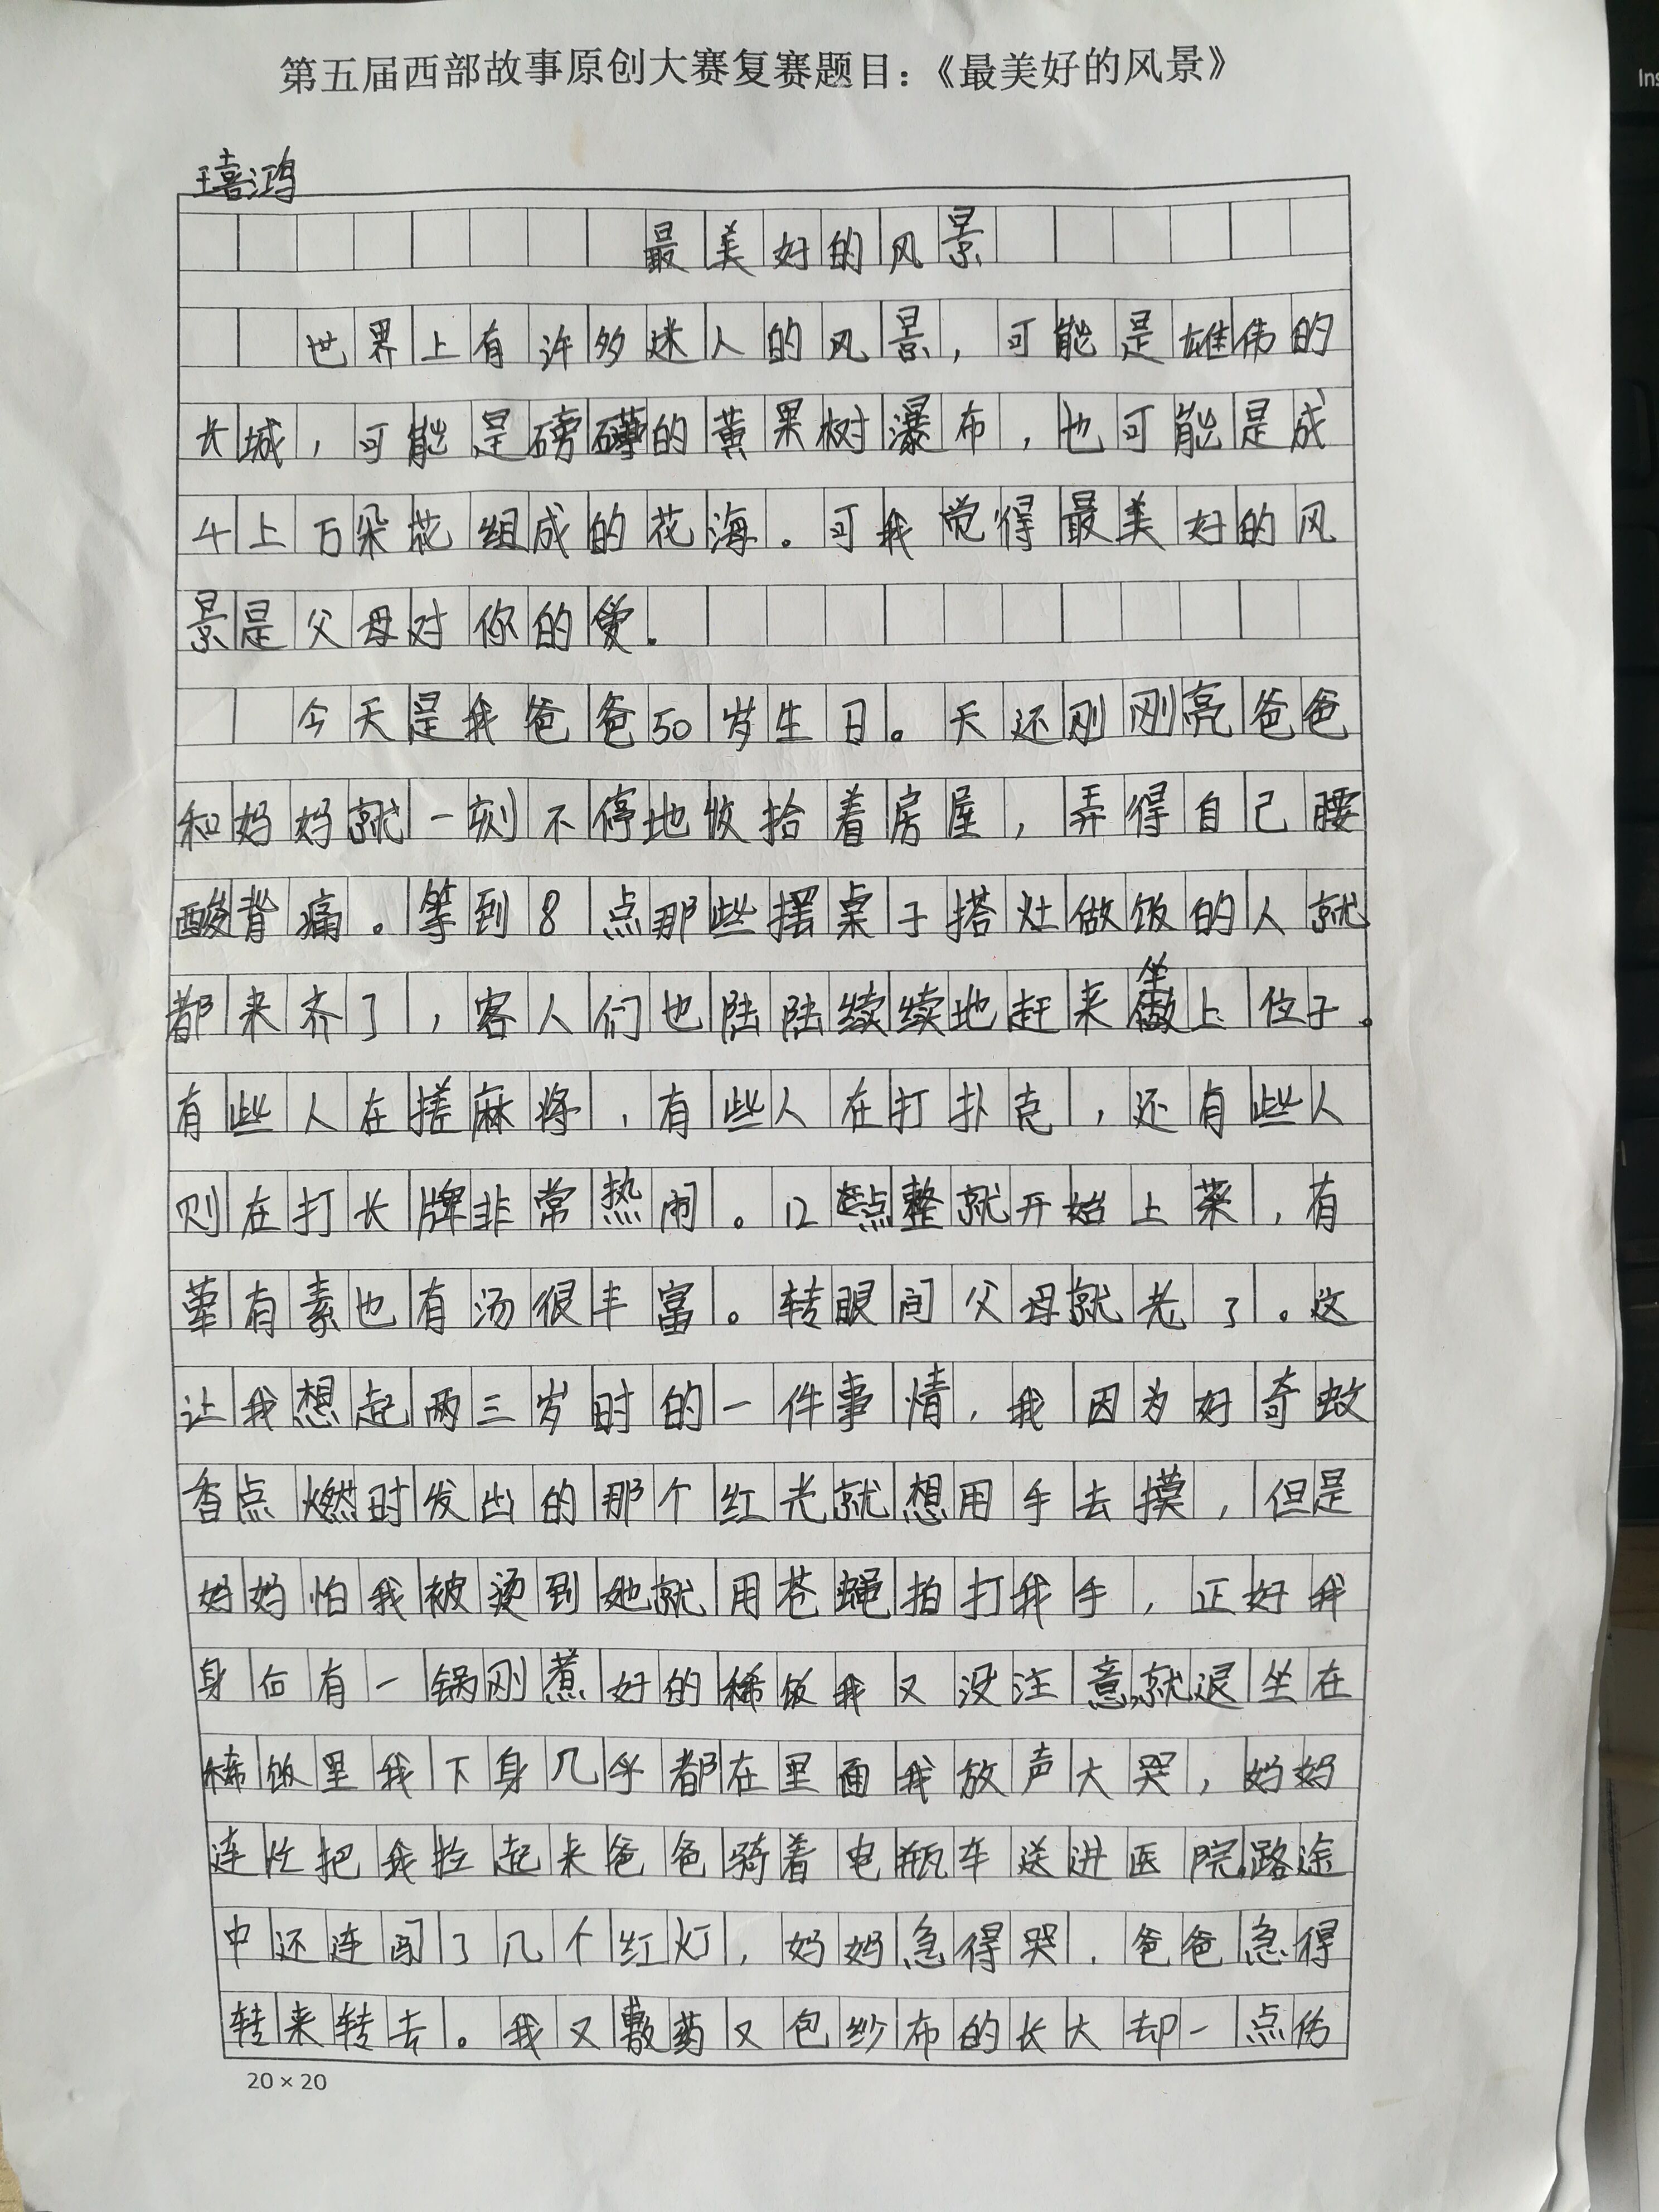 第五届西部故事原创大赛复赛题目：《最美好的风景》
王喜鸿
最美好的风景
世界上有许多迷人的风景，可能是雄伟的
长城，可能是磅礴的黄果树瀑布，也可能是成
千上万朵花组成的花海。可我觉得最美好的风
景是父母对你的爱。
今天是我爸爸50岁生日。天还刚刚亮爸爸
和妈妈就一刻不停地收拾着房屋，弄得自己腰
酸背痛。等到8点那些摆桌子搭灶做饭的人就
都来齐了，客人们也陆陆续续地赶来坐上位子。
有些人在搓麻将，有些人在打扑克，还有些人
则在打长牌非常热闹。12点整就开始上菜，有
荤有素也有汤很丰富。转眼间父母就老了。这
让我想起两三岁时的一件事情，我因为好奇蚊
香点燃时发出的那个红光就想用手去摸，但是
妈妈怕我被烫到她就用苍蝇拍打我手，正好我
身后有一锅刚煮好的稀饭我又没注意，就退坐在
稀饭里我下身几乎都在里面我放声大哭，妈妈
连忙把我拉起来爸爸骑着电瓶车送进医院。路途
中还连闯了几个红灯，妈妈急得哭，爸爸急得
转来转去。我又敷药又包纱布的长大却一点伤
20×20
Ins